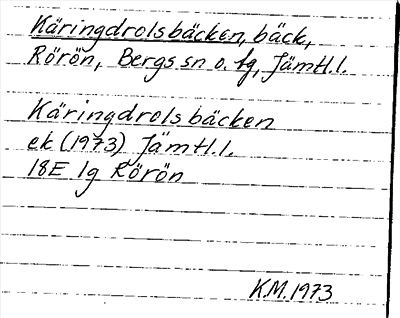 Käringdrolsbäcken, bäck,
Rörön, Bergs sn o. fg, Jämtl.l.
Käringdrolsbäcken
ek (1973) Jämtl.l.
18E 1g Rörön
K.M. 1973